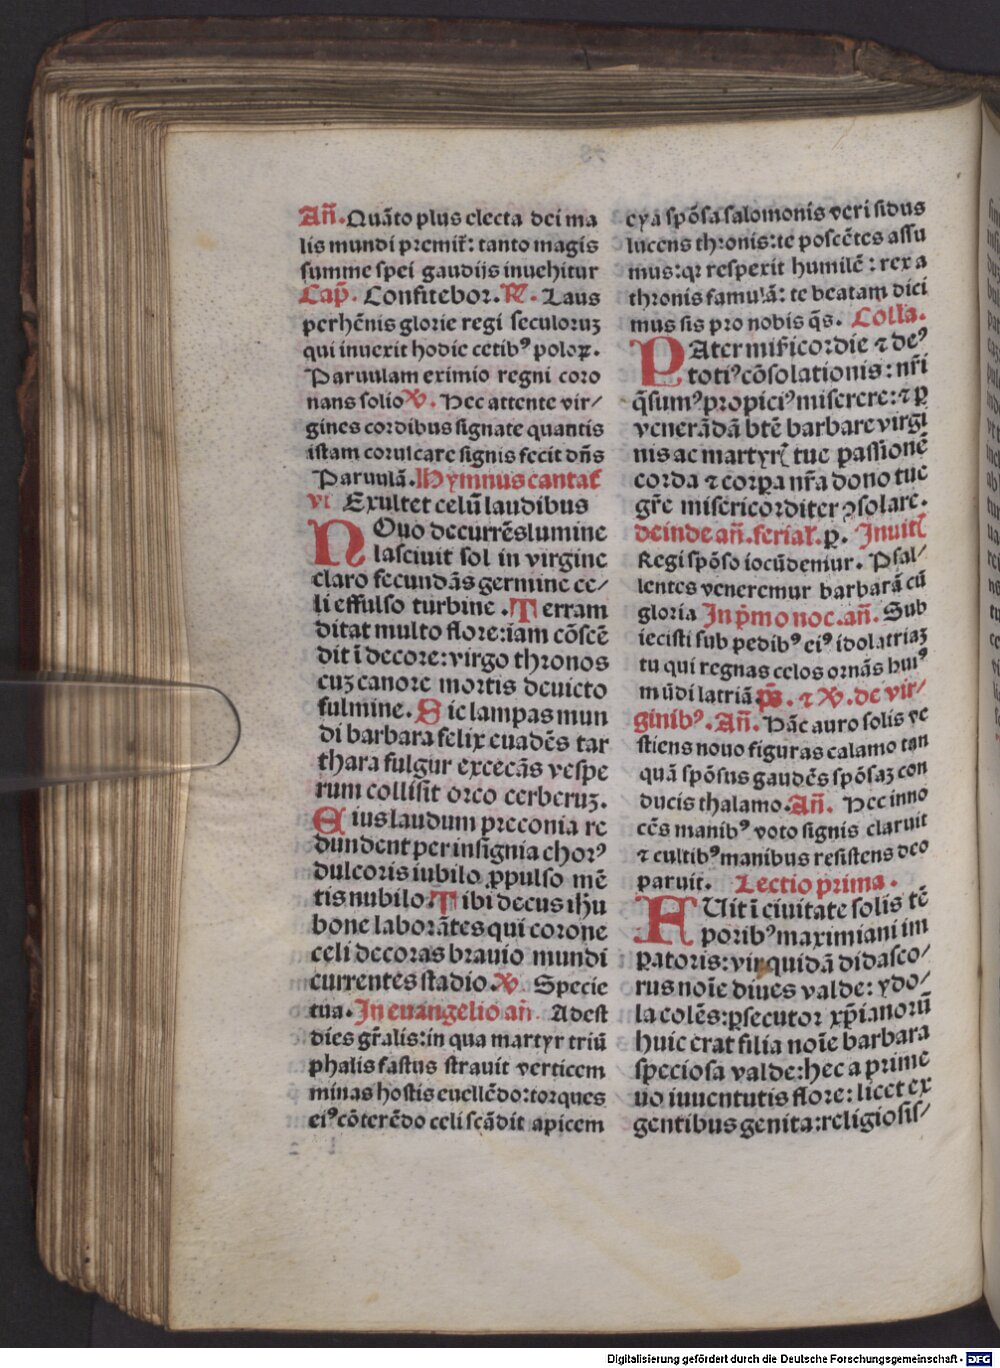 Añ. Quãto plus electa dei ma
lis mundi premit̃: tanto magis
summe spei gaudijs inuehitur
Cap̃. Confitebor. R̃. Laus
perhẽnis glorie regi seculoruꝫ
qui inuexit hodie cetibꝰ poloꝝ.
Paruulam eximio regni coro
nans solio ℣. Hec attente vir/
gines cordibus signate quantis
istam coruscare signis fecit dñs
Paruulã. Hymnus cantat̃
vt Exultet celũ laudibus
NOuo decurrẽs lumine
lasciuit sol in virgine
claro fecundãs germine ce/
li effulso turbine. Terram
ditat multo flore: iam cõscẽ
dit ĩ decore: virgo thronos
cuꝫ canore mortis deuicto
fulmine. Sic lampas mun
di barbara felix euadẽs tar
thara fulgur excecãs vespe
rum collisit orco cerberuꝫ.
Eius laudum preconia re
dundent per insignia chorꝰ
dulcoris iubilo ꝓpulso mẽ
tis nubilo. Tibi decus ihu
bone laborãtes qui corone
celi decoras brauio mundi
currentes stadio. ℣. Specie
tua. In euangelio añ. Adest
dies gr̃alis: in qua martyr triũ
phalis fastus strauit verticem
minas hostis euellẽdo: torques
eiꝰ cõterẽdo celi scãdit apicem
eya spõsa salomonis veri sidus
lucens thronis: te poscẽtes assu
mus: qꝛ respexit humilẽ: rex a
thronis famulã: te beatam dici
mus sis pro nobis q̃s. Colla.
PAter mĩficordie ⁊ deꝰ
totiꝰ cõsolationis: nr̃i
q̃sumꝰ propiciꝰ miserere: ⁊ ꝑ
venerãdã btẽ barbare virgi
nis ac martyrꝭ tue passionẽ
corda ⁊ corꝑa nr̃a dono tue
gr̃e misericorditer ꝯsolare.
deinde añ. ferial̃. ꝑ. Inuitꝭ
Regi spõso iocũdemur. Psal/
lentes veneremur barbarã cũ
gloria In p̃mo noc. añ. Sub
iecisti sub pedibꝰ eiꝰ idolatriaꝫ
tu qui regnas celos ornãs huiꝰ
mũdi latriã. p̃s. ⁊ ℣. de vir/
ginibꝰ. Añ. Hãc auro solis ve
stiens nouo figuras calamo tan
quã spõsus gaudẽs spõsaꝫ con
ducis thalamo. Añ. Hec inno
cẽs manibꝰ voto signis claruit
⁊ cultibꝰ manibus resistens deo
paruit. Lectio prima.
FUit ĩ ciuitate solis tẽ
poribꝰ maximiani im
ꝑatoris: vir quidã didasco/
rus noĩe diues valde: ydo/
la colẽs: ꝑsecutor xp̃ianorũ
huic erat filia noĩe barbara
speciosa valde: hec a prime
uo iuuentutis flore: licet ex
gentibus genita: religiosis/
Digitalisierung gefördert durch die Deutsche Forschungsgemeinschaft - DFG